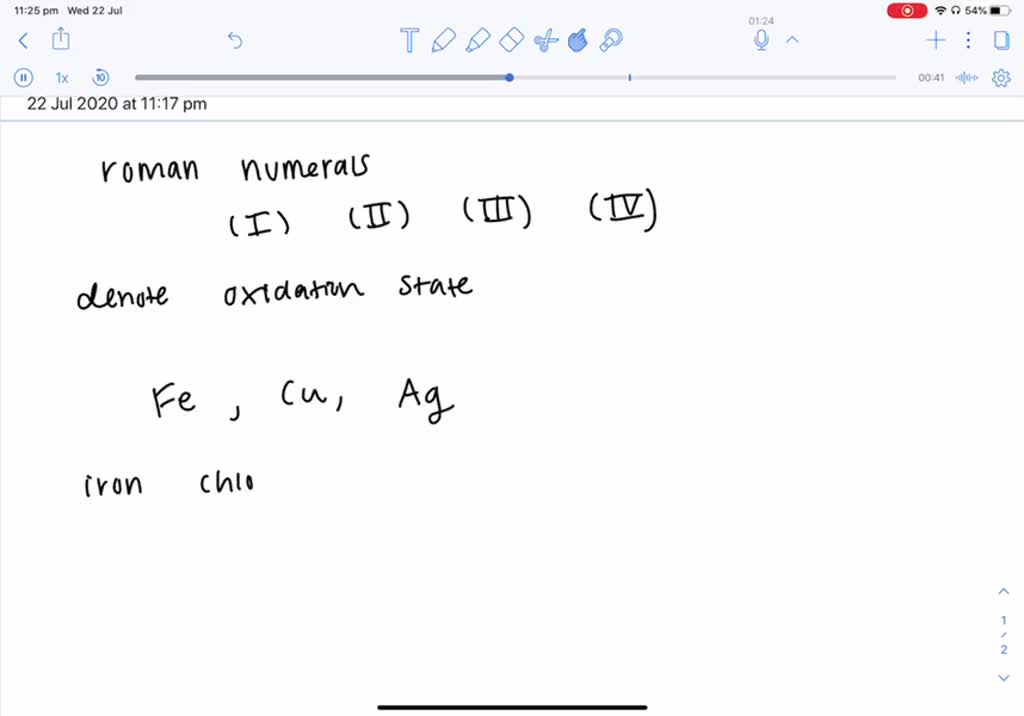 11:25 pm Wed 22 Jul 54%
01:24
1x 10 00:41
22 Jul 2020 at 11:17 pm
roman numerals
(I) (II) (III) (IV)
denote oxidation state
Fe , Cu, Ag
iron chlo
1
/
2